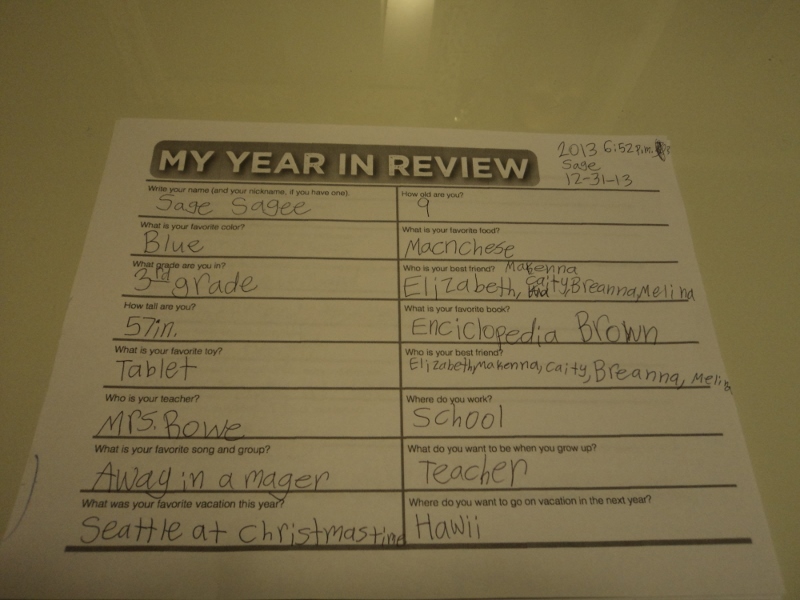 MY YEAR IN REVIEW
2013 6:52 P.m.
Sage
12-31-13
Write your name (and your nickname, if you have one).
Sage Sagee
How old are you?
9
What is your favorite color?
Blue
What is your favorite food?
Macnchese
What grade are you in?
3rd grade
Who is your best friend? Makenna
Elizabeth, Caity, Breanna, Melina
How tall are you?
57in.
What is your favorite book?
Enciclopedia Brown
What is your favorite toy?
Tablet
Who is your best friend?
Elizabeth, Makenna, Caity, Breanna, Melina
Who is your teacher?
Mrs. Rowe
Where do you work?
School
What is your favorite song and group?
Away in a mager
What do you want to be when you grow up?
Teacher
What was your favorite vacation this year?
Seattle at christmastime
Where do you want to go on vacation in the next year?
Hawii